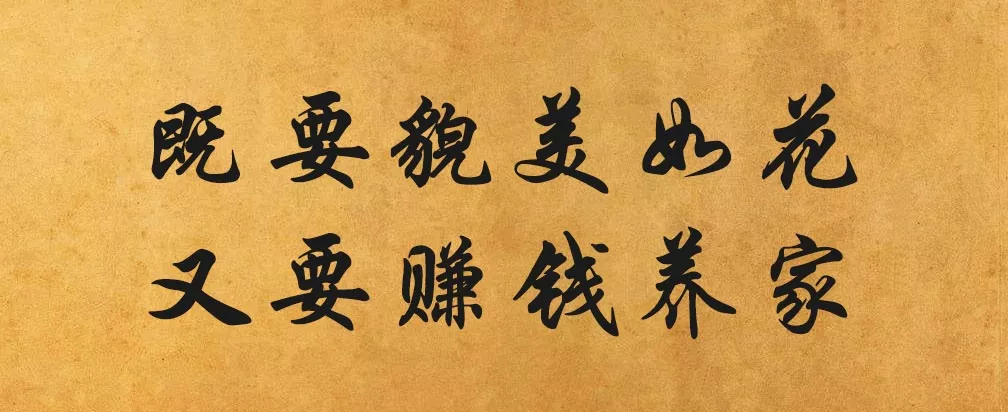 既要貌美如花
又要赚钱养家